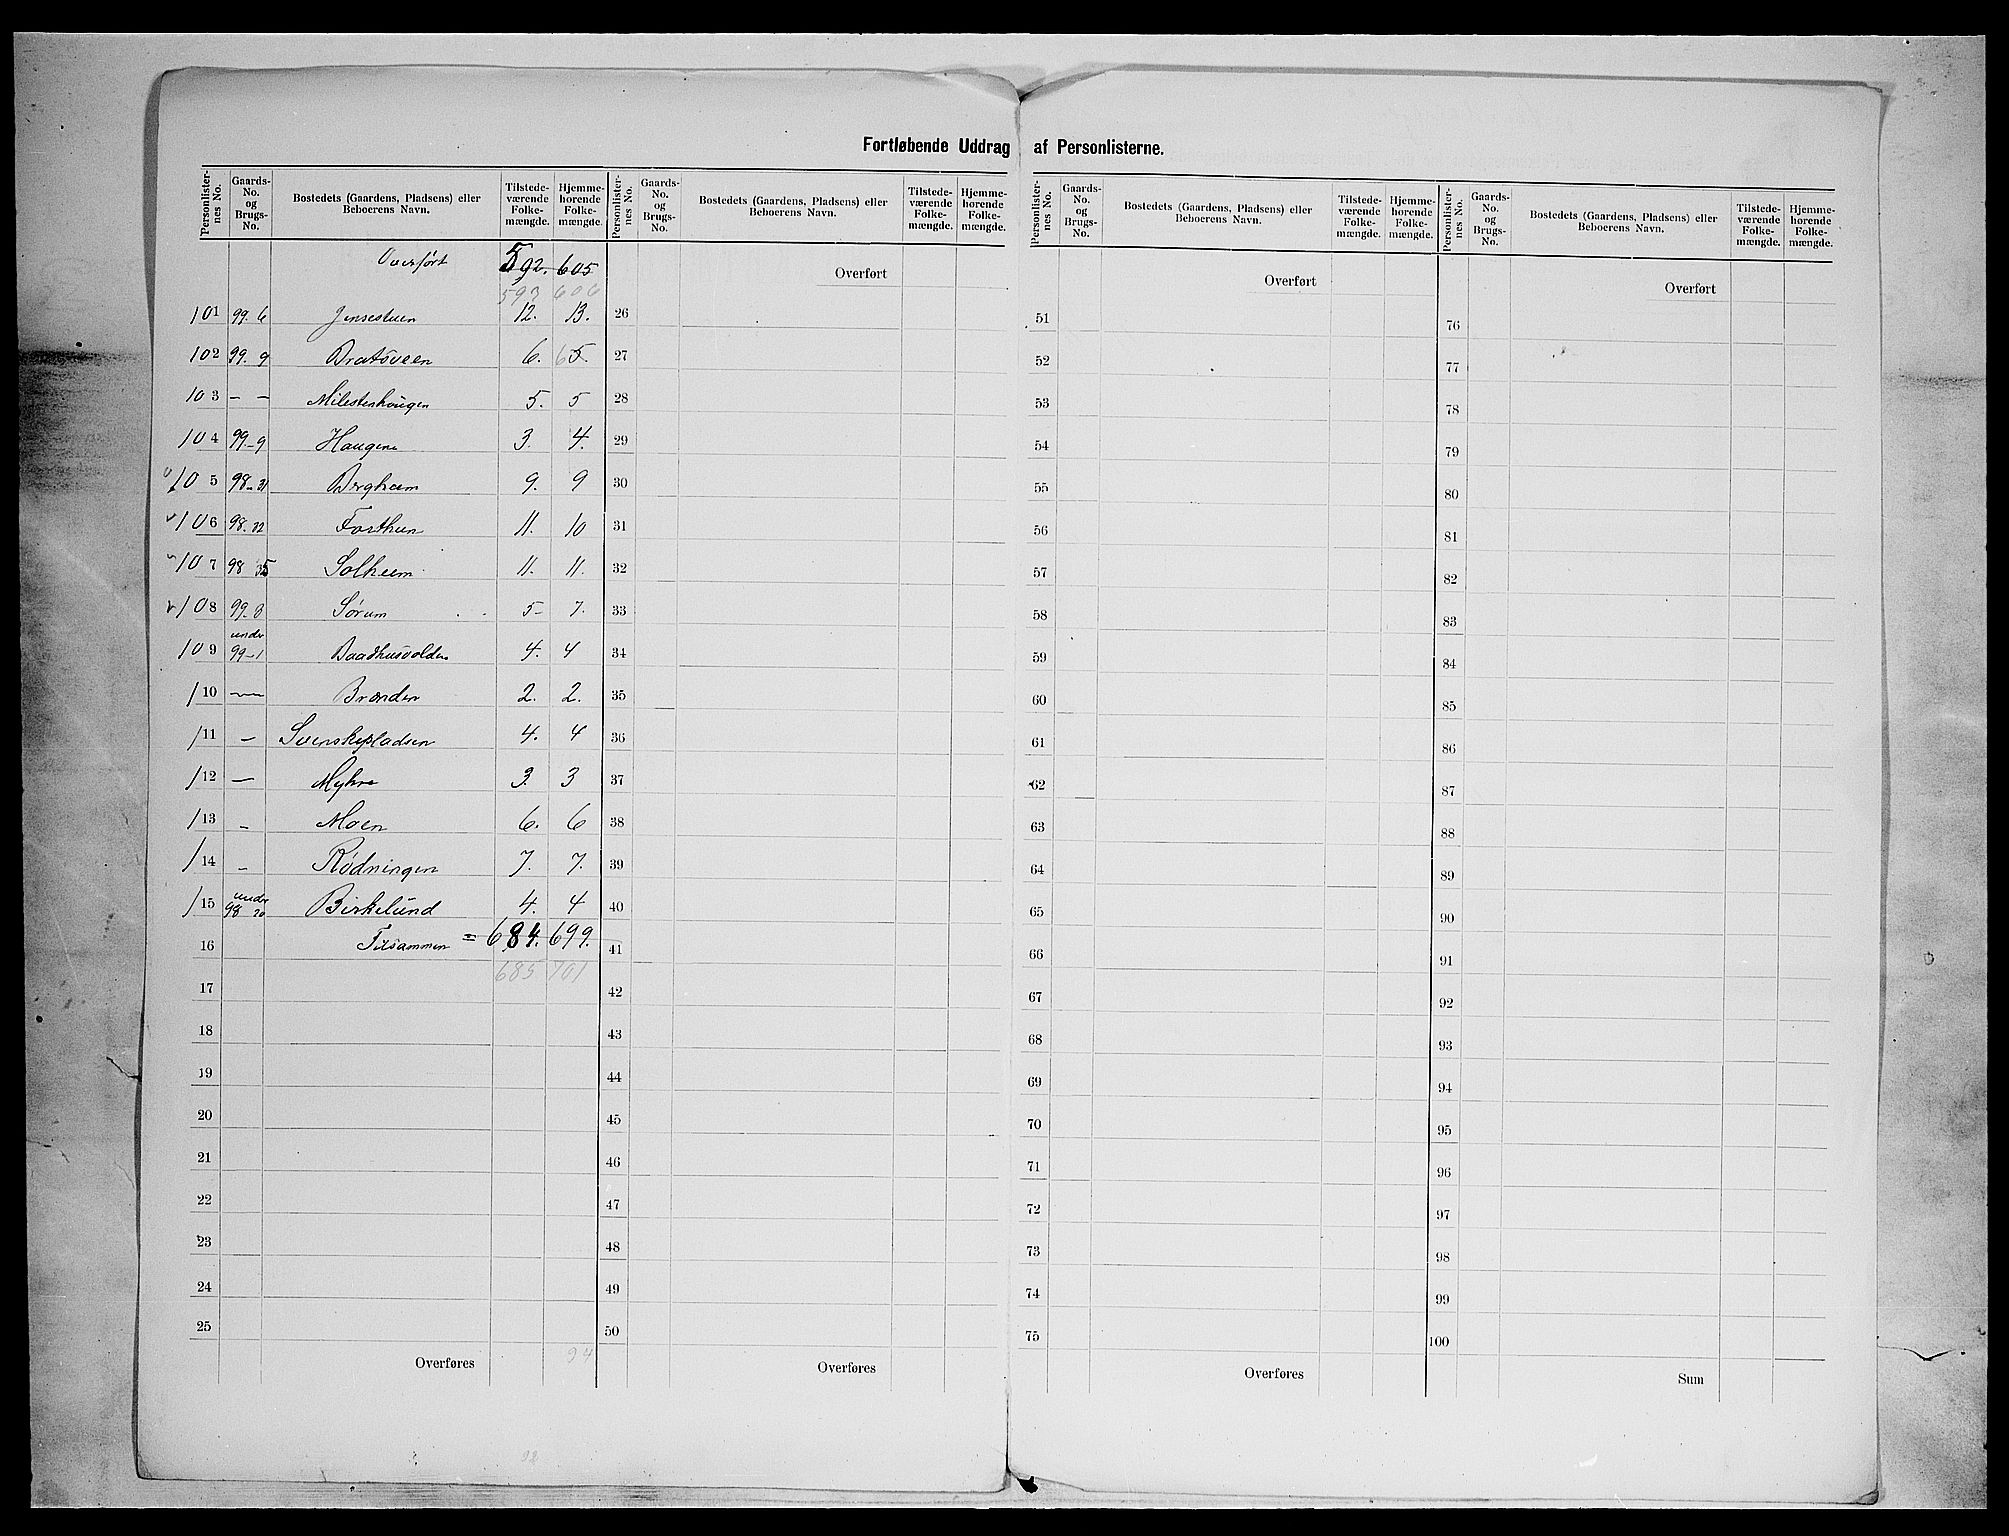 Fortløbende Uddrag af Personlisterne.
Personlister-nes No. | Gaards-No. og Brugs-No. | Bostedets (Gaardens, Pladsens) eller Beboerens Navn. | Tilstede-værende Folke-mængde. | Hjemme-hørende Folke-mængde.
Overført 592. 605
593 606
101 99. 6 Jensestuen 12. 13.
102 99. 9 Bratsveen 6. 6 5.
103 — — Milestenhougen 5. 5
104 99-9 Haugen 3. 4.
105 98-31 Bergheim 9. 9
106 98. 32 Forthun 11. 10
107 98 35 Solheim 11. 11.
108 99-8 Sørum 5- 7.
109 under 99-1 Baadhusvolden 4. 4
110 — Brænden 2. 2.
111 — Svenskepladsen 4. 4
112 — Myhre 3. 3
113 — Moen 6. 6
114 — Rødningen 7. 7.
115 under 98 20 Birkelund 4. 4
16 Tilsammen = 684. 699.
685 701
17
18
19
20
21
22
23
24
25
Overføres 94
92
Personlister-nes No. | Gaards-No. og Brugs-No. | Bostedets (Gaardens, Pladsens) eller Beboerens Navn. | Tilstede-værende Folke-mængde. | Hjemme-hørende Folke-mængde.
Overført
26
27
28
29
30
31
32
33
34
35
36
37
38
39
40
41
42
43
44
45
46
47
48
49
50
Overføres
Personlister-nes No. | Gaards-No. og Brugs-No. | Bostedets (Gaardens, Pladsens) eller Beboerens Navn. | Tilstede-værende Folke-mængde. | Hjemme-hørende Folke-mængde.
Overført
51
52
53
54
55
56
57
58
59
60
61
62
63
64
65
66
67
68
69
70
71
72
73
74
75
Overføres
Personlister-nes No. | Gaards-No. og Brugs-No. | Bostedets (Gaardens, Pladsens) eller Beboerens Navn. | Tilstede-værende Folke-mængde. | Hjemme-hørende Folke-mængde.
Overført
76
77
78
79
80
81
82
83
84
85
86
87
88
89
90
91
92
93
94
95
96
97
98
99
100
Sum